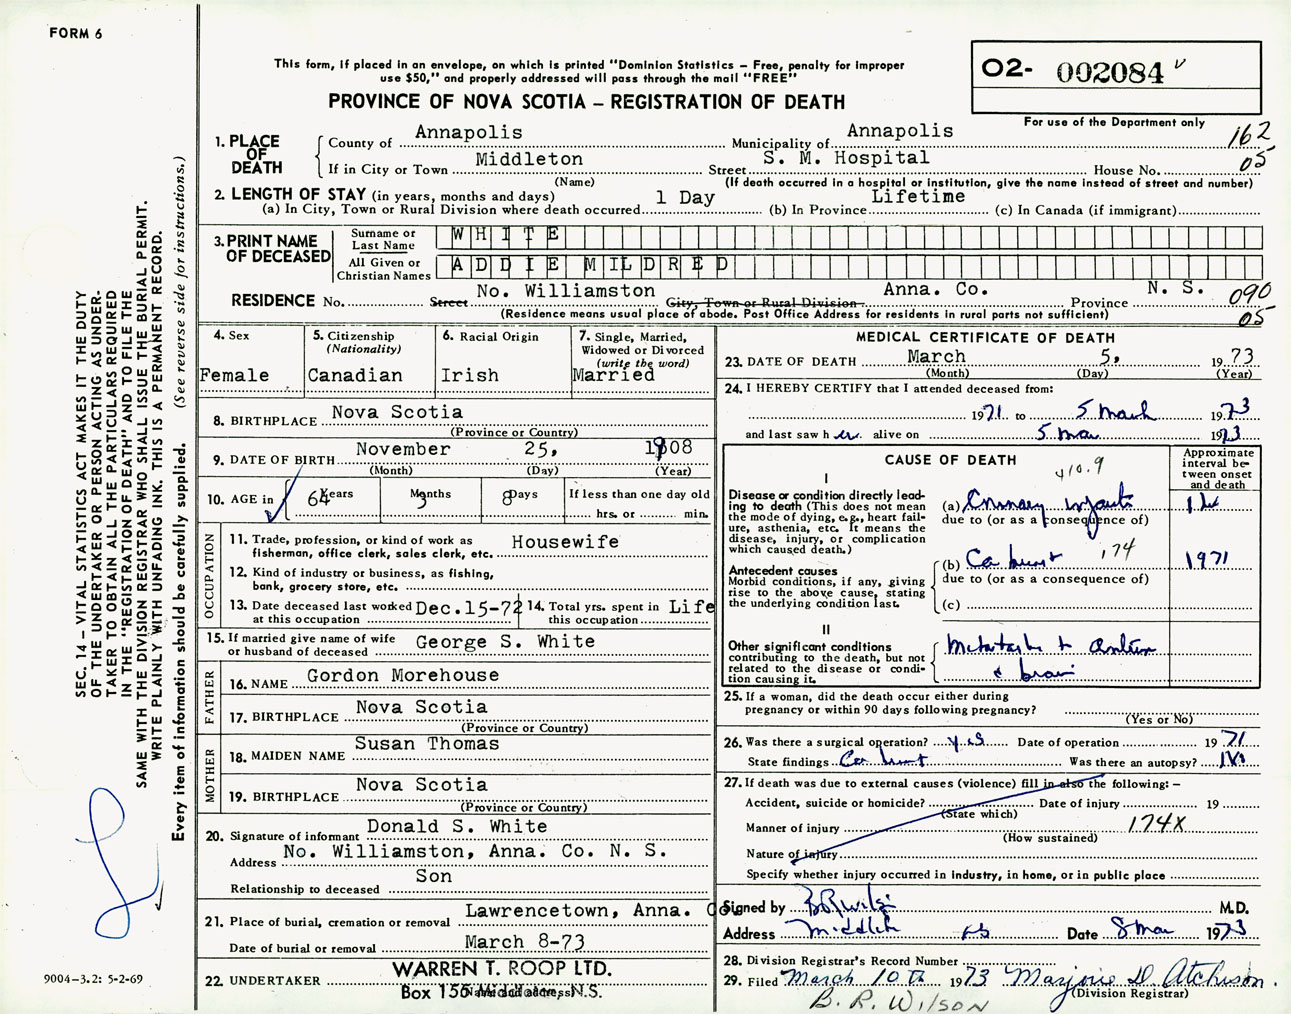 FORM 6
This form, if placed in an envelope, on which is printed "Dominion Statistics – Free, penalty for improper
use $50," and properly addressed will pass through the mail "FREE"
PROVINCE OF NOVA SCOTIA – REGISTRATION OF DEATH
O2- 002084
For use of the Department only
162
05
1. PLACE OF DEATH
County of Annapolis Municipality of Annapolis
If in City or Town Middleton Street S. M. Hospital House No.
(Name) (If death occurred in a hospital or institution, give the name instead of street and number)
2. LENGTH OF STAY (in years, months and days)
(a) In City, Town or Rural Division where death occurred 1 Day (b) In Province Lifetime (c) In Canada (if immigrant)
3. PRINT NAME OF DECEASED
Surname or Last Name WHITE
All Given or Christian Names ADDIE MILDRED
RESIDENCE No. Street No. Williamston City, Town or Rural Division Anna. Co. Province N. S. 090
(Residence means usual place of abode. Post Office Address for residents in rural parts not sufficient) 05
4. Sex Female
5. Citizenship (Nationality) Canadian
6. Racial Origin Irish
7. Single, Married, Widowed or Divorced (write the word) Married
8. BIRTHPLACE Nova Scotia
(Province or Country)
9. DATE OF BIRTH November 25, 1908
(Month) (Day) (Year)
10. AGE in 64 Years 3 Months 8 Days If less than one day old
hrs. or min.
OCCUPATION
11. Trade, profession, or kind of work as Housewife
fisherman, office clerk, sales clerk, etc.
12. Kind of industry or business, as fishing,
bank, grocery store, etc.
13. Date deceased last worked at this occupation Dec.15-72 14. Total yrs. spent in this occupation Life
15. If married give name of wife or husband of deceased George S. White
FATHER
16. NAME Gordon Morehouse
17. BIRTHPLACE Nova Scotia
(Province or Country)
MOTHER
18. MAIDEN NAME Susan Thomas
19. BIRTHPLACE Nova Scotia
(Province or Country)
20. Signature of informant Donald S. White
Address No. Williamston, Anna. Co. N. S.
Relationship to deceased Son
21. Place of burial, cremation or removal Lawrencetown, Anna. Co.
Date of burial or removal March 8-73
22. UNDERTAKER WARREN T. ROOP LTD.
Box 156 Middleton, N.S.
(Name and address)
MEDICAL CERTIFICATE OF DEATH
23. DATE OF DEATH March 5, 1973
(Month) (Day) (Year)
24. I HEREBY CERTIFY that I attended deceased from:
1971 to 5 March 1973
and last saw her alive on 5 Mar 1973
CAUSE OF DEATH
Approximate interval between onset and death
410.9
I
Disease or condition directly leading to death (This does not mean the mode of dying, e.g., heart failure, asthenia, etc. It means the disease, injury, or complication which caused death.)
(a) Coronary infarct
due to (or as a consequence of)
(b) Ca breast 174 1971
due to (or as a consequence of)
Antecedent causes
Morbid conditions, if any, giving rise to the above cause, stating the underlying condition last.
(c)
II
Other significant conditions contributing to the death, but not related to the disease or condition causing it.
& brain
25. If a woman, did the death occur either during
pregnancy or within 90 days following pregnancy?
(Yes or No)
26. Was there a surgical operation? yes Date of operation 1971
State findings Ca breast Was there an autopsy? No
27. If death was due to external causes (violence) fill in also the following: –
Accident, suicide or homicide? Date of injury 19
(State which)
Manner of injury 174X
(How sustained)
Nature of injury
Specify whether injury occurred in industry, in home, or in public place
Signed by B R Wilson M.D.
Address Middleton NS Date 8 Mar 1973
28. Division Registrar's Record Number
29. Filed March 10th 1973 Marjorie D. Atchison.
(Division Registrar)
B. R. WILSON
SEC. 14 – VITAL STATISTICS ACT MAKES IT THE DUTY
OF THE UNDERTAKER OR PERSON ACTING AS UNDER-
TAKER TO OBTAIN ALL THE PARTICULARS REQUIRED
IN THE "REGISTRATION OF DEATH" AND TO FILE THE
SAME WITH THE DIVISION REGISTRAR WHO SHALL ISSUE THE BURIAL PERMIT.
WRITE PLAINLY WITH UNFADING INK. THIS IS A PERMANENT RECORD.
Every item of information should be carefully supplied. (See reverse side for instructions.)
9004-3.2: 5-2-69